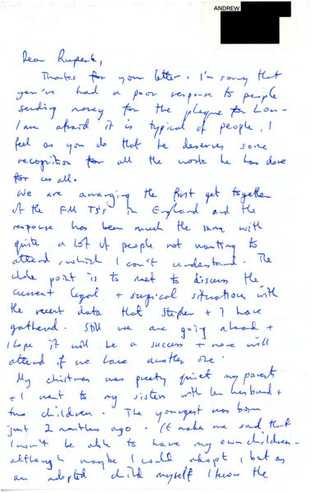 ANDREW
Dear Rupert,
Thanks for your letter. I'm sorry that
you've had a poor response to people
sending money for the plaque for Lou -
I am afraid it is typical of people, I
feel as you do that he deserves some
recognition for all the work he has done
for us all.
We are arranging the first get together
of the FM TS's in England and the
response has been much the same with
quite a lot of people not wanting to
attend, which I can't understand. The
whole point is to meet to discuss the
current legal + surgical situations with
the recent data that Stephen + I have
gathered. Still we are going ahead +
I hope it will be a success + more will
attend if we have another one.
My christmas was pretty quiet my parents
+ I went to my sisters with her husband +
two children. The youngest was born
just 2 months ago. It made me sad that
I won't be able to have my own children -
although maybe I could adopt, but as
an adopted child myself I know the